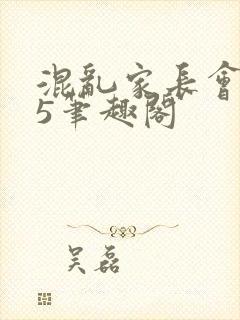 混亂家長會
5筆趣閣
吴磊